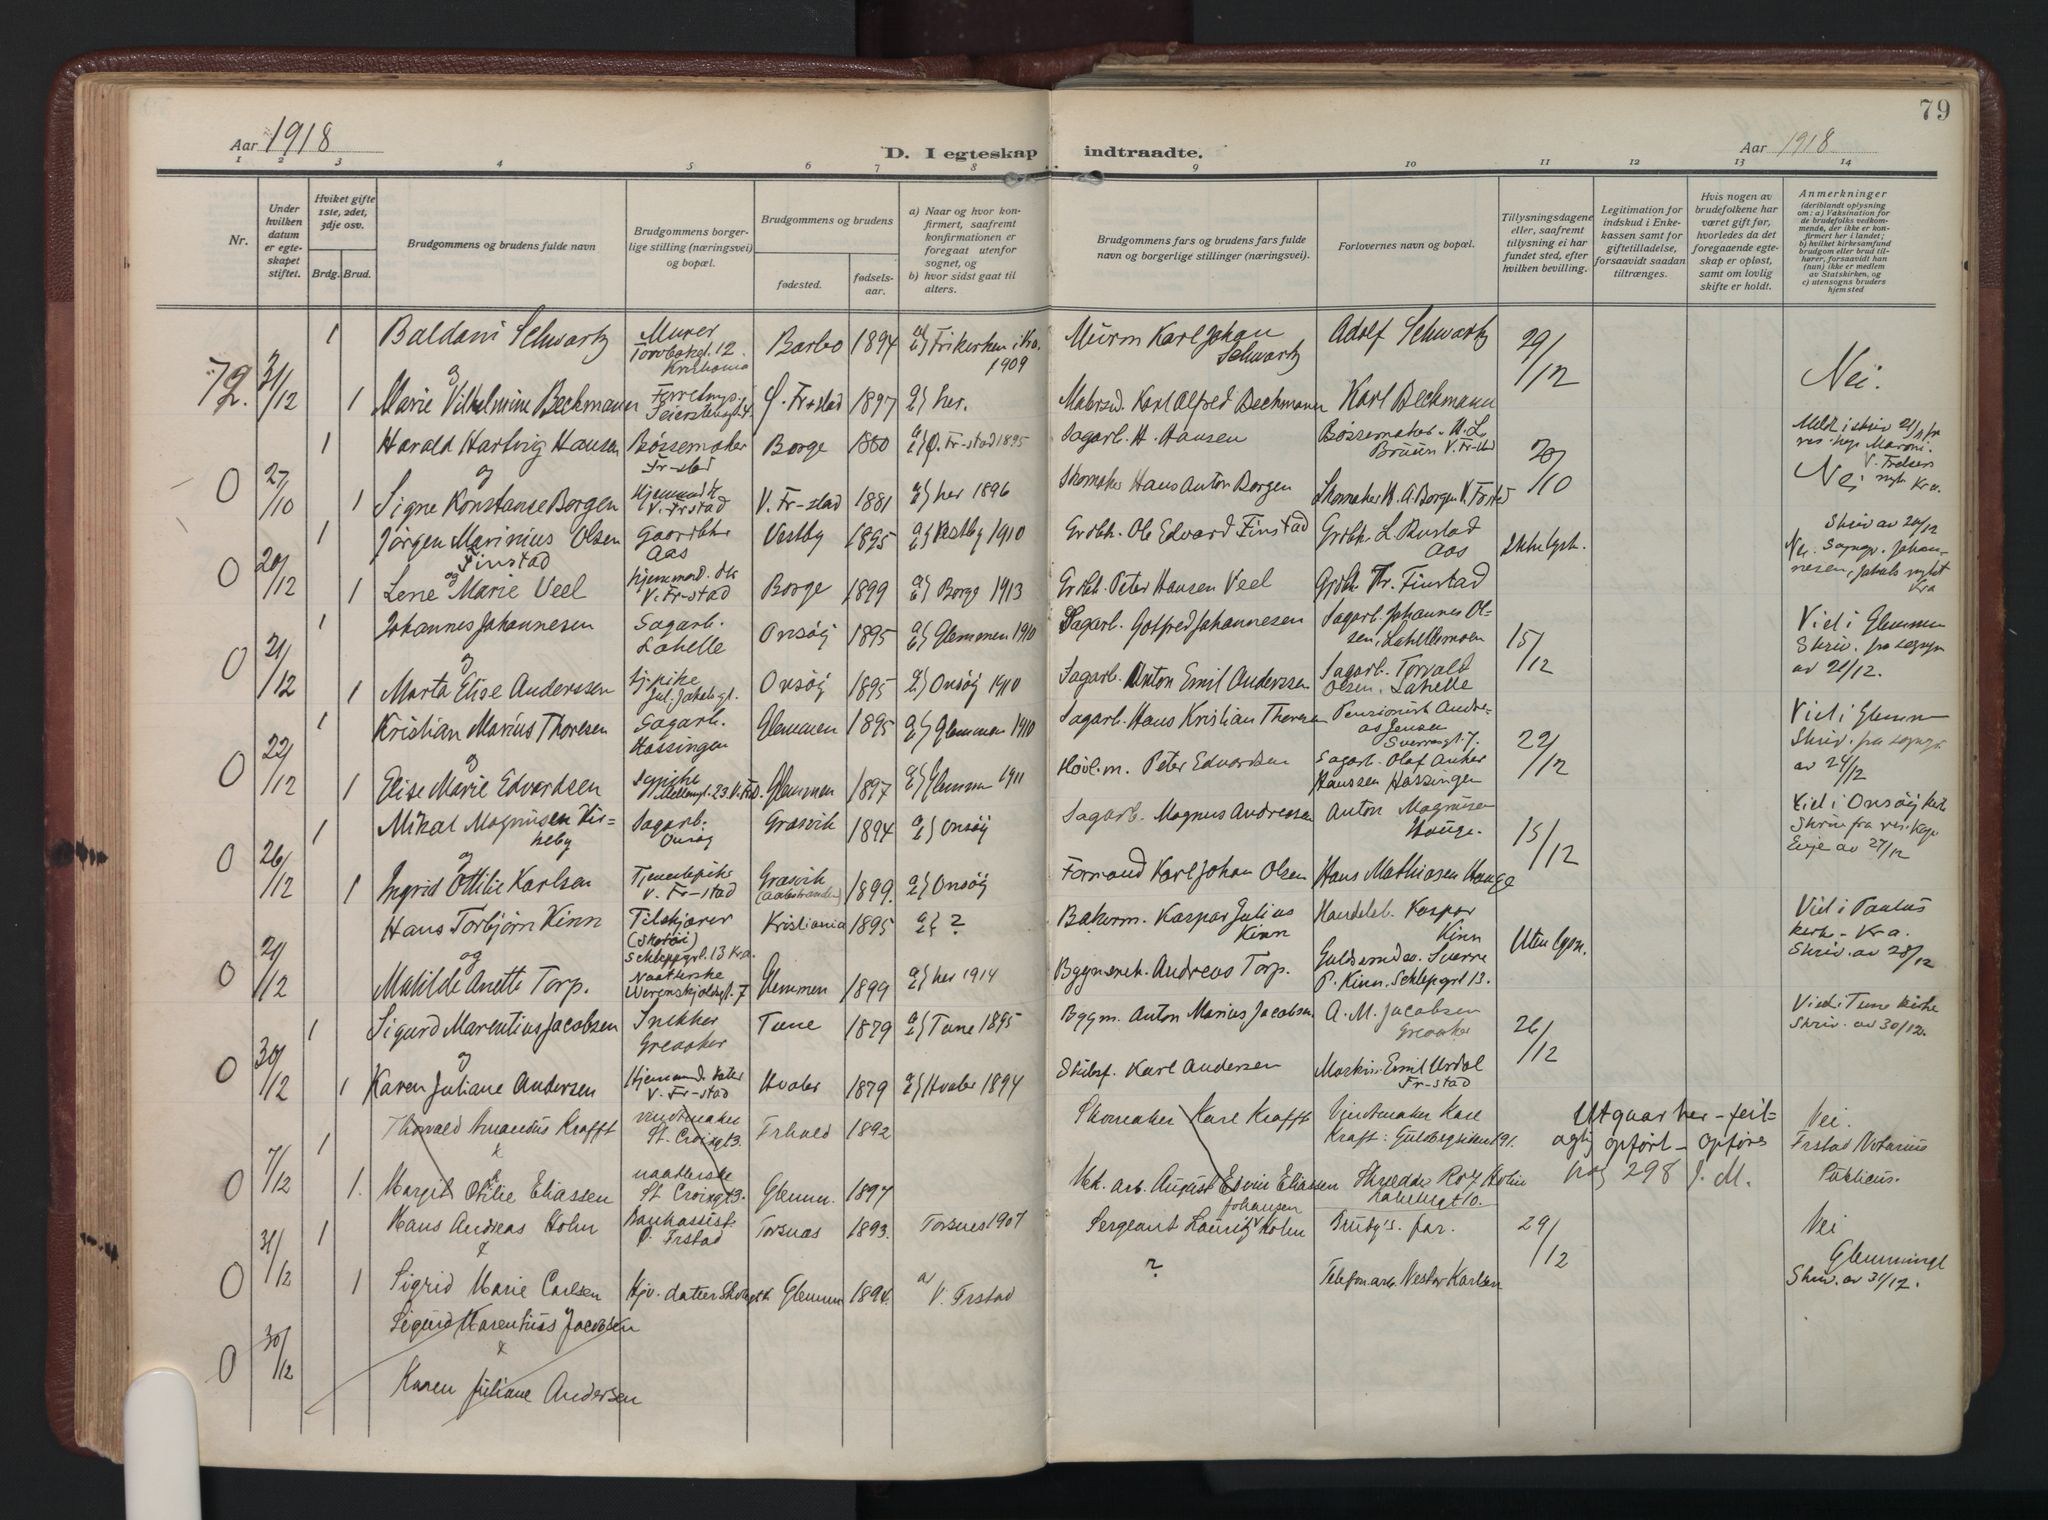 79
Aar 1918
D. I egteskap indtraadte.
Aar 1918
1 2 3 4 5 6 7 8 9 10 11 12 13 14
Nr.
Under hvilken datum er egteskapet stiftet.
Hviket gifte 1ste, 2det, 3dje osv.
Brdg. Brud.
Brudgommens og brudens fulde navn
Brudgommens borgerlige stilling (næringsvei) og bopæl.
Brudgommens og brudens
fødested.
fødselsaar.
a) Naar og hvor konfirmert, saafremt konfirmationen er foregaat utenfor sognet, og
b) hvor sidst gaat til alters.
Brudgommens fars og brudens fars fulde navn og borgerlige stillinger (næringsvei).
Forlovernes navn og bopæl.
Tillysningsdagene eller, saafremt tillysning ei har fundet sted, efter hvilken bevilling.
Legitimation for indskud i Enkekassen samt for giftetilladelse, forsaavidt saadan tiltrænges.
Hvis nogen av brudefolkene har været gift før, hvorledes da det foregaaende egteskap er opløst, samt om lovlig skifte er holdt.
Anmerkninger
(deriblandt oplysning om: a) Vaksination for de brudefolks vedkommende, der ikke er konfirmert her i landet; b) hvilket kirkesamfund brudgom eller brud tilhører, forsaavidt han (hun) ikke er medlem av Statskirken, og c) utensogns bruders hjemsted
1 Baldani Schwartz Murer 12 Kristiania Barbo 1894 a) b) Frikirken i Kra. 1909 Murm Karl Johan Schwartz Adolf Schwartz 29/12
72. 31/12 og Nei.
1 Marie Vilhelmine Beckmann Ø. Fr-stad 1897 a) b) her. Karl Alfred Beckmann Karl Beckmann
1 Harald Hartvig Hansen Bössemaker Fr-stad Borge 1880 a) b) Ø. Fr-stad 1895 Sagarb. H. Hansen Bössemaker H. L. Bruun V. Fr-stad 20/10
0 27/10 og Nei
1 Signe Konstanse Borgen V. Fr.stad V. Fr-stad 1881 a) b) her 1896 Skomaker Hans Anton Borgen Skomaker H. A. Borgen V. Frstad
1 Jörgen Marinius Olsen Finstad Gaardbr. Aas Vestby 1895 a) b) Vestby 1910 Grdbr. Ole Edvard Finstad Grdbr. L. Bustad Aas Skriv av 20/12
0 20/12 og
1 Lene Marie Veel V. Fr-stad Borge 1899 a) b) Borge 1913 Grdbr. Peter Hansen Veel Grdbr. Kr. Finstad
1 Johannes Johannesen Sagarb. Lahelle Onsöy 1895 a) b) Glemmen 1910 Sagarb. Gotfred Johannesen Sagarb. Johannes Olsen, Lahellemoen 15/12 Viet i Glemmen Skriv. fra sognpr. av 21/12.
0 21/12 og
1 Marta Elise Anderssen Onsöy 1895 a) b) Onsöy 1910 Sagarb. Anton Emil Anderssen Sagarb. Torvald Olsen, Lahelle
1 Kristian Marius Thoresen Sagarb. Hassingen Glemmen 1895 a) b) Glemmen 1910 Sagarb. Hans Kristian Thoresen Pensionist Andreas Jensen 22/12 Viet i Glemmen Skriv. fra sognpr. av 24/12
0 22/12 og
1 Elise Marie Edvardsen Sypike Glemmen 1897 a) b) Glemmen 1911 Hövl.m. Peter Edvardsen Sagarb. Olaf Anker Hanssen Hassingen
1 Mikal Magnussen Kirkeby Sagarb. Onsöy Græsvik 1894 a) b) Onsöy Sagarb. Magnus Andreassen Anton Magnussen Hauge. 15/12 Viet i Onsöy kirke Skriv fra res. kap. av 27/12
0 26/12 og
1 Ingrid Ottilie Karlsen Tjenestepike V. Fr-stad Græsvik 1899. a) b) Onsöy Formand Karl Johan Olsen Hans Mathiasen Hauge
Hans Torbjörn Kinn Tilskjærer Schleppgrl. 13 Kra. Kristiania 1895 a) b) ? Bakerm. Kaspar Julius Kinn Handelsb. Kaspar Kinn Viet i Paulus kirke - Kra. Skriv. av 28/12
0 21/12 og
Matilde Anette Torp. Naaterske Werenskjoldsgt. 7 Glemmen 1899 a) b) her 1914 Andreas Torp. Sverre P. Kinn. Schlepgrl 13.
1 Sigurd Marentius Jacobsen Snekker Greaaker Tune 1879 a) b) Tune 1895 Byggm. Anton Marius Jacobsen A. M. Jacobsen Greaaker 26/12 Viet i Tune kirke Skriv. av 30/12.
0 30/12 og
1 Karen Juliane Andersen V. Fr-stad Hvaler 1879 a) b) Hvaler 1894 Karl Andersen Maskin. Emil Urdal Fr-stad
1 Thorvald Amandus Krafft St. Croixgt 3. Frhald 1892 Skomaker Karl Krafft Karl Kraft: Utgaar her - feilagtig opfört - Opföres 298 J. M. Nei. Frstad Notarius Publicus.
0 7/12
1. Margit Otilie Eliassen naaterske St Croixgt 3. Glemm. 1897 August Edvin Eliassen Johansen
1 Hans Andreas Holm Bankassist. Ö. Frstad Torsnæs 1893. Torsnes 1907 Sergeant Lauritz Holm Brudg's. far. 29/12 Nei
0 31/12
1 Sigrid Marie Carlsen Glemm. 1894. a) V. Frstad ? Telefonarb. Nestor Karlsen Skriv. av 31/12.
0 30/12 Sigurd Marentius Jacobsen
Karen Juliane Andersen